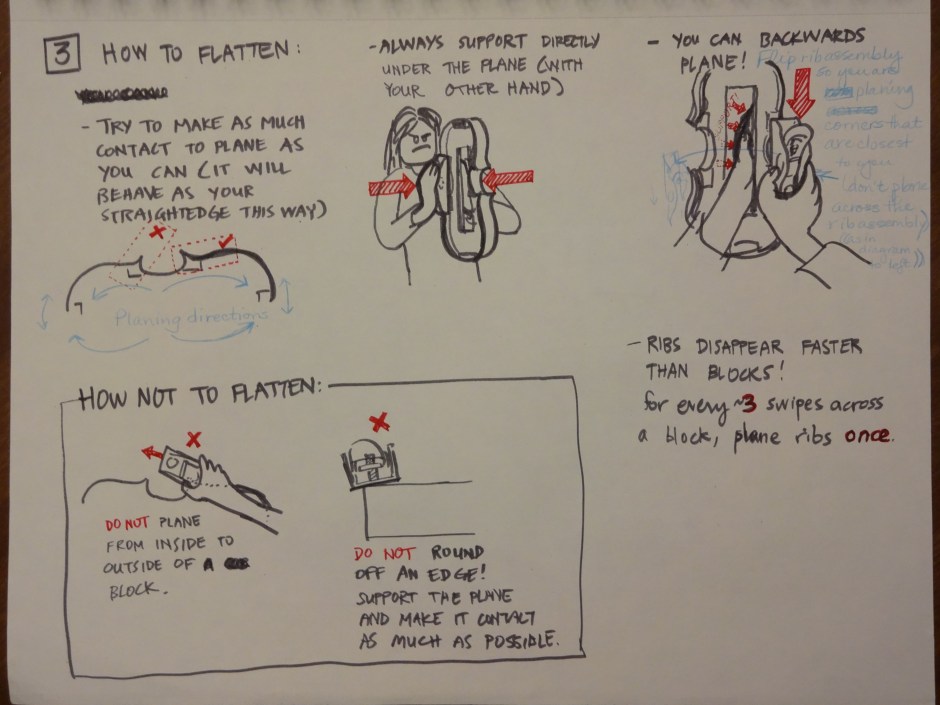 3 HOW TO FLATTEN:
- TRY TO MAKE AS MUCH
CONTACT TO PLANE AS
YOU CAN (IT WILL
BEHAVE AS YOUR
STRAIGHTEDGE THIS WAY)
Planing directions
- ALWAYS SUPPORT DIRECTLY
UNDER THE PLANE (WITH
YOUR OTHER HAND)
- YOU CAN BACKWARDS
PLANE!
Flip rib assembly
so you are
planing
corners that
are closest
to you
(don't plane
across the
rib assembly)
(as in
diagram
to left))
- RIBS DISAPPEAR FASTER
THAN BLOCKS!
for every ~3 swipes across
a block, plane ribs once.
HOW NOT TO FLATTEN:
DO NOT PLANE
FROM INSIDE TO
OUTSIDE OF A
BLOCK.
DO NOT ROUND
OFF AN EDGE!
SUPPORT THE PLANE
AND MAKE IT CONTACT
AS MUCH AS POSSIBLE.